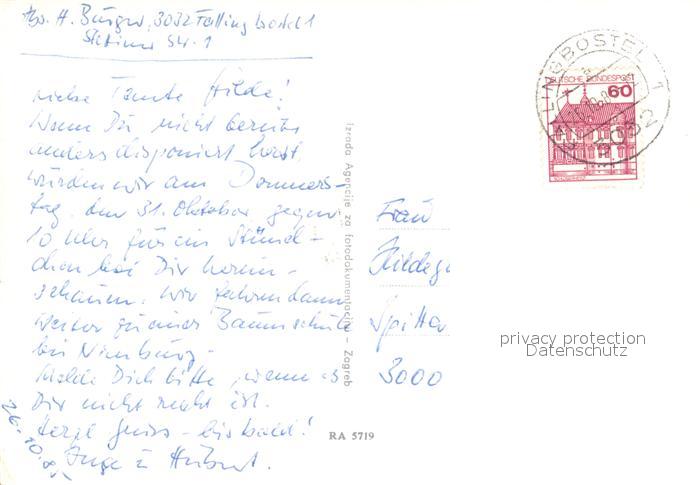 Abs. H. Burger, 3032 Fallingbostel 1
Stettiner Str. 1
Liebe Tante Hilde!
Wenn Du nicht bereits
anders disponiert hast,
würden wir am Donners-
tag, den 31. Oktober gegen
10 Uhr für ein Stünd-
chen bei Dir herein-
schauen. Wir fahren dann
weiter zu einer Baumschule
bei Nienburg.
Melde Dich bitte, wenn es
Dir nicht recht ist.
Herzl Gruss - bis bald!
Inge u Hubert.
26.10.85
Izrada Agencije za fotodokumentaciju - Zagreb
RA 5719
LINGBOSTEL 1
DEUTSCHE BUNDESPOST
60
Frau
Hildeg
Spitta
3000
privacy protection
Datenschutz